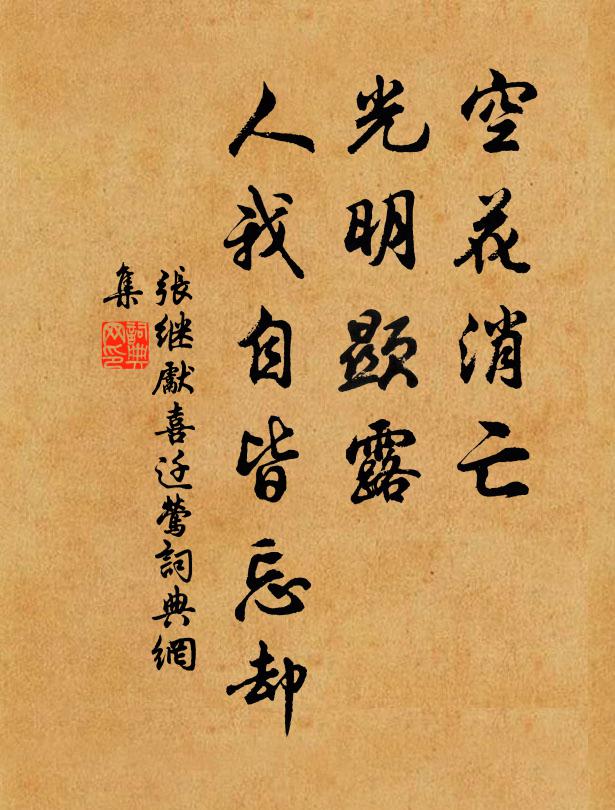 空花消亡
光明顯露
人我自皆忘却
張继獻喜迁鶯詞典網
集
詞典网印